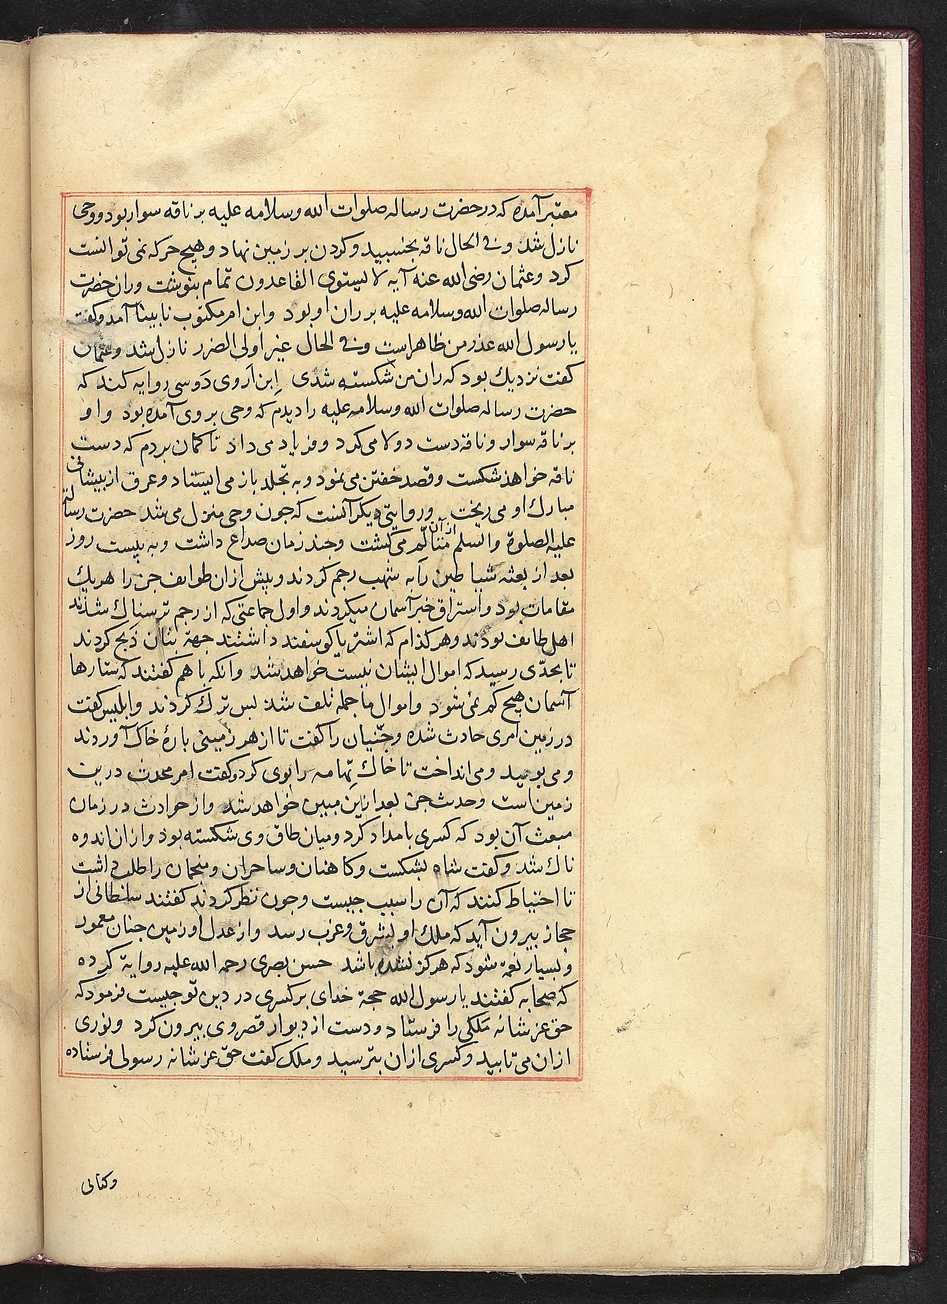 معتبر آمده که در حضرت رساله صلوات الله وسلامه علیه بر ناقه سوار بود و وحی
نازل شد و فی الحال ناقه بخسبید و کردن بر زمین نهاد و هیچ حرکه نمی توانست
کرد و عثمان رضی الله عنه آیه لا یستوی القاعدون تمام بنوشت و ران حضرت
رساله صلوات الله وسلامه علیه بر ران او بود و ابن ام مکتوب نابینا آمد و گفت
یا رسول الله عذر من ظاهر است و فی الحال غیر اولی الضرر نازل شد و عثمان
کفت نزدیك بود که ران من شکسته شدی ابن اروی دوسی روایه کند که
حضرت رساله صلوات الله وسلامه علیه را دیدم که وحی بر وی آمده بود و او
بر ناقه سوار و ناقه دست دولا می کرد و فریاد می داد تا کمان بردم که دست
ناقه خواهد شکست و قصد خفتن می نمود و به تجلد باز می ایستاد و عرق از پیشانی
مبارك او می ریخت و روایتی دیکر آنست که جون وحی منزل می شد حضرت رسالت
علیه الصلوة والسلم از آن متألم می کشت و جند زمان صداع داشت و به بیست روز
بعد از بعثه شیاطین را به شهب رجم کردند و پیش از ان طوایف جن را هر یك
مقامات بود و استراق خبر آسمان میکردند و اول جماعتی که از رجم ترسناك شدند
اهل طایف بودند و هر کدام که اشتر یا کوسفند داشتند جهة بتان ذبح کردند
تا بحدی رسید که اموال ایشان نیست خواهد شد وانکه با هم کفتند که ستارها
آسمان هیچ کم نمی شود و اموال ما جمله تلف شد بس ترك کردند و ابلیس کفت
در زمین امری حادث شده و جنیان را کفت تا از هر زمینی بارۀ خاك آوردند
و می بویید و می انداخت تا خاك تهامه را بوی کرد و کفت امر محدث درین
زمین است و حدث جن بعد ازین مبین خواهد شد و از حوادث در زمان
مبعث آن بود که کسری بامداد کرد و میان طاق وی شکسته بود و از ان اندوه
ناك شد و کفت شاه بشکست و کاهنان و ساحران و منجمان را طلب داشت
تا احتیاط کنند که آن را سبب جیست و جون نظر کردند کفتند سلطانی از
حجاز بیرون آید که ملك او بشرق و غرب رسد و از عدل او زمین جنان معمور
و بسیار نعمة شود که هرکز نشده باشد حسن بصری رحمه الله علیه روایة کرده
که صحابه کفتند یا رسول الله حجة خدای بر کسری در دین تو جیست فرمود که
حق عز شانه ملکی را فرستاد و دست از دیوار قصر وی بیرون کرد و نوری
از ان می تابید و کسری از ان بترسید و ملك کفت حق عز شانه رسولی فرستاده
و کتابی